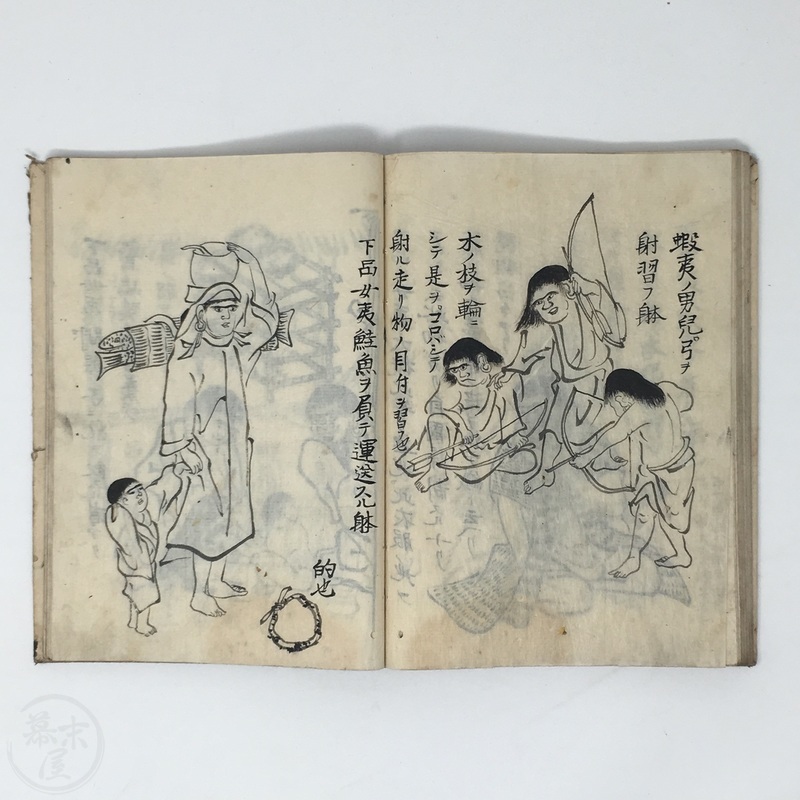 蝦夷ノ男兒弓ヲ
射習フ躰
木ノ枝ヲ輪ニ
シテ是ヲコロバシテ
射ル走リ物ノ目付ヲ習フ也
下品女夷鮭魚ヲ負テ運送スル躰
的也
幕末屋